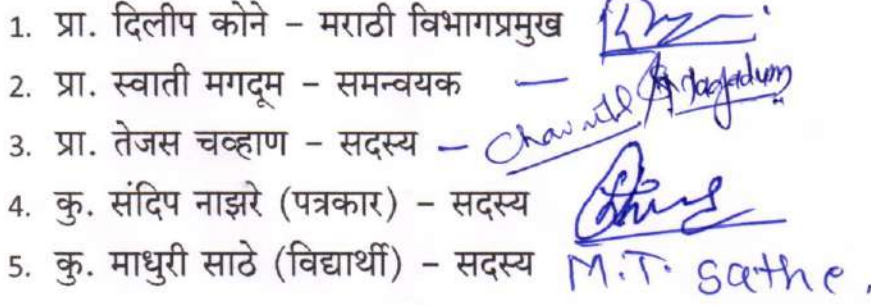 1. प्रा. दिलीप कोने – मराठी विभागप्रमुख
2. प्रा. स्वाती मगदूम – समन्वयक – Magadum
3. प्रा. तेजस चव्हाण – सदस्य –
4. कु. संदिप नाझरे (पत्रकार) – सदस्य
5. कु. माधुरी साठे (विद्यार्थी) – सदस्य M.T. Sathe.